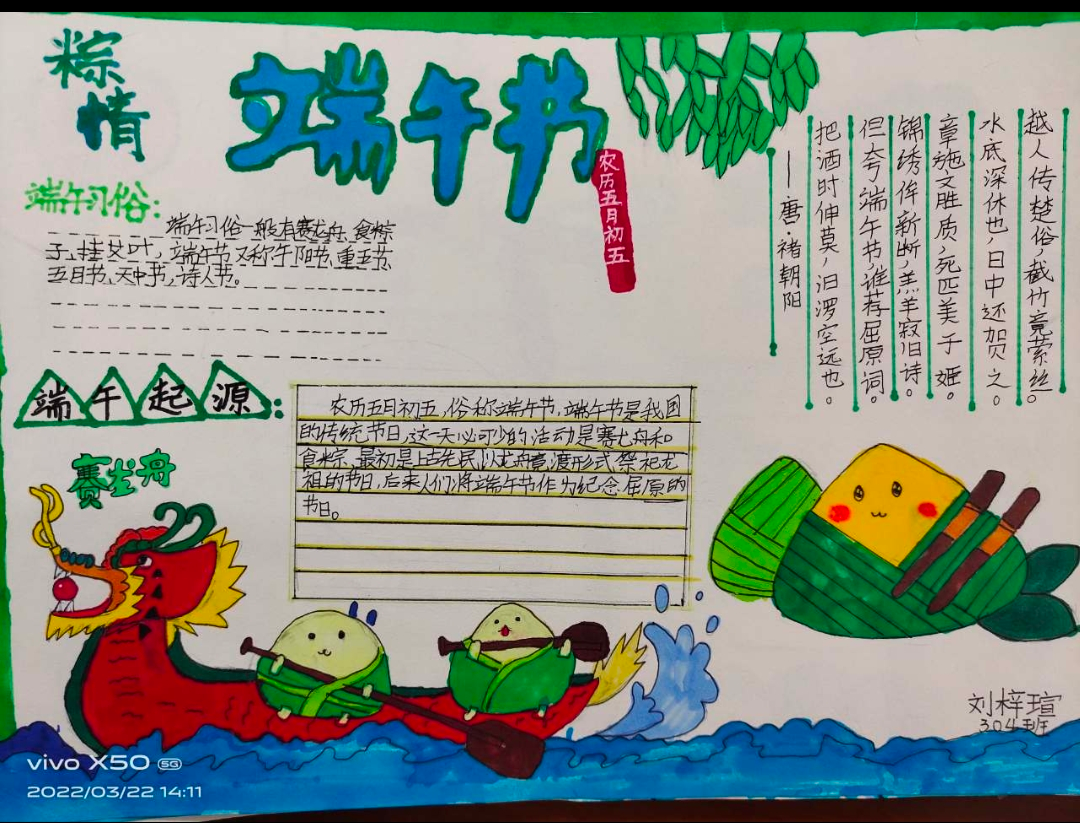 粽
情
端午节
农历五月初五
端午习俗:
端午习俗一般有赛龙舟、食粽
子、挂艾叶,端午节又称午阳节、重五节、
五月节、天中节,诗人节。
越人传楚俗,截竹竟萦丝。
水底深休也,日中还贺之。
章施文胜质,列匹美于姬。
锦绣侔新断,羔羊寂旧诗。
但夸端午节,谁荐屈原词。
把酒时伸莫,汨罗空远也。
——唐·褚朝阳
端午起源:
农历五月初五,俗称端午节,端午节是我国
的传统节日,这一天必可少的活动是赛龙舟和
食粽,最初是上古先民以龙舟竟渡形式祭祀龙
祖的节日,后来人们将端午节作为纪念屈原的
节日。
赛龙舟
刘梓瑄
304班
vivo X50 5G
2022/03/22 14:11